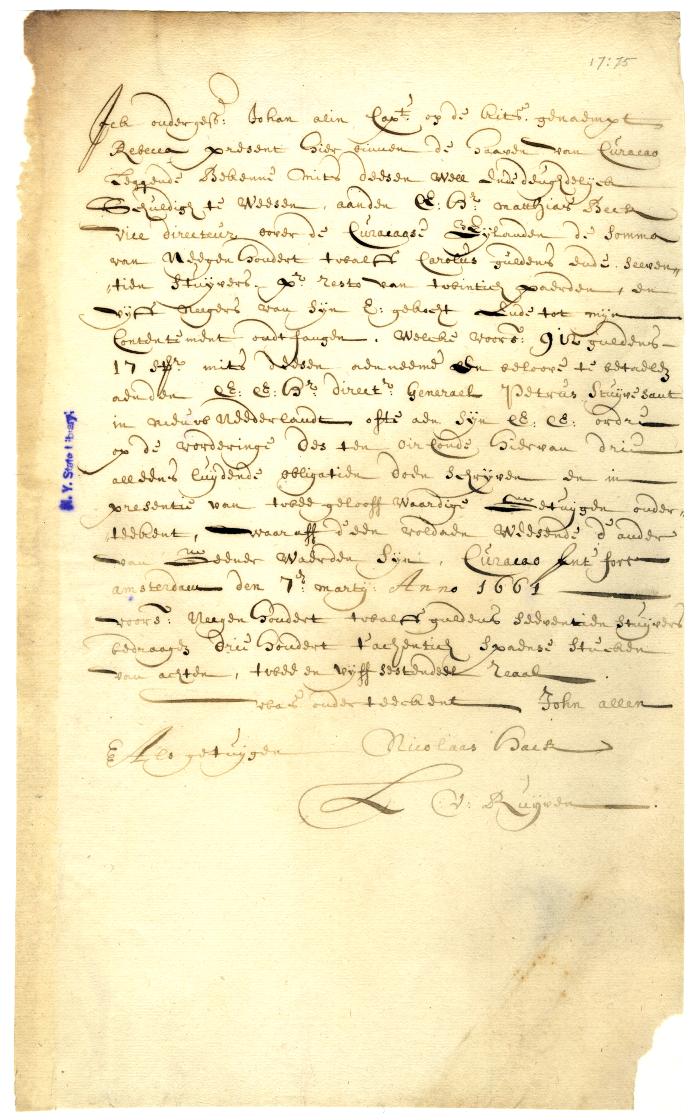 17:75
Ick ondergess: Johan alin Capt: op de kits. genaempt
Rebecca present hier binnen de haaven van Curacao
Leggende Bekenne mits deesen Well Ende deughdelijck
Schuldigh te Weesen, aanden E: Hr matthias Beck
vice directeur over de Curacaose Eylanden de somma
van Neegen hondert twalff Carolus guldens ende seeven„
„tien stuyvers. pr resto van twintich paerden, en
vyff Negers van syn E: gekocht Ende tot myn
Contentement ondtfangen. Welcke voors: 912 guldens
17 str mits deesen aenneeme en beloove te betaelen
aenden E: E: Hr directr Generael Petrus Stuyvesant
in nieuw Neederlandt ofte aen syn E: E: ordre
op de vorderinge des ten oirconde hiervan drie
alleens luydende obligatien doen schryven en in
presentie van twee gelooff waardige Getuygen onder„
teekent, waaraff d'een voldaen Weesende d'ander
van Geener Waerden syn, Curacao Int fort
amsterdam den 7e marty Anno 1661
voors: Neegen hondert twalff guldens seeventien stuyvers
bedraagen drie hondert tachentich spaense stucken
van achten, twee en vyff sestendeel reaal
was onderteeckent John allen
Als getuygen Nicolaas Hack
L V: Ruyven
N.Y. State Library.